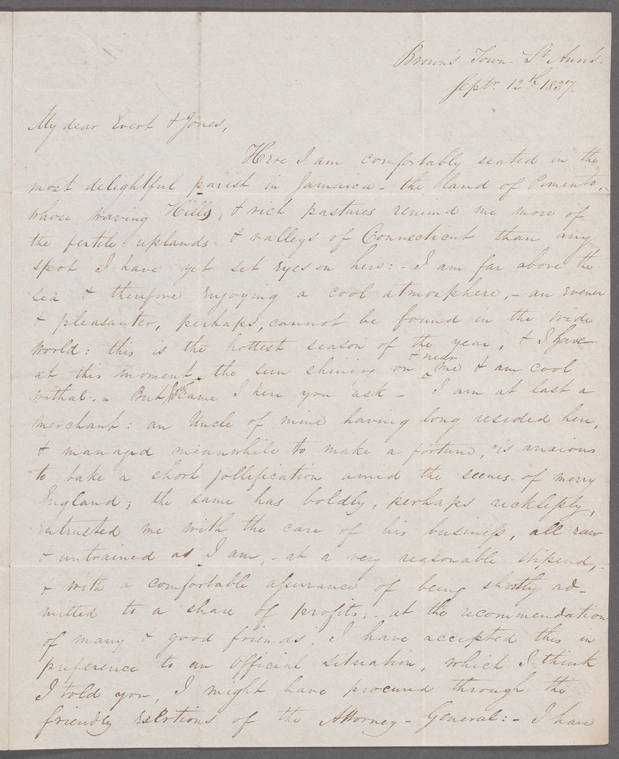 Brown's Town. St. Ann's.
Septr. 12th 1837.
My dear Evert & Jones,
Here I am comfortably seated in the
most delightful parish in Jamaica - the land of Pimento,
whose waving Hills, & rich pastures remind me more of
the fertile uplands & valleys of Connecticut than any
spot I have yet set Eyes on here: - I am far above the
sea & therefore enjoying a cool atmosphere, - an evener
& pleasanter, perhaps, cannot be found in the wide
world: this is the hottest season of the year, & I have
at this moment the sun shining on & near me & am cool
withal. - But how came I here you ask - I am at last a
merchant: an Uncle of mine having long resided here,
& managed meanwhile to make a fortune, is anxious
to take a short jollification amid the scenes of merry
England; the same has boldly, perhaps recklessly,
entrusted me with the care of his business, all raw
& untrained as I am, - at a very reasonable stipend, -
& with a comfortable assurance of being shortly ad-
mitted to a share of profits, - at the recommendation
of many & good friends. I have accepted this in
preference to an official situation, which I think
I told you, I might have procured through the
friendly exertions of the Attorney-General: - I have